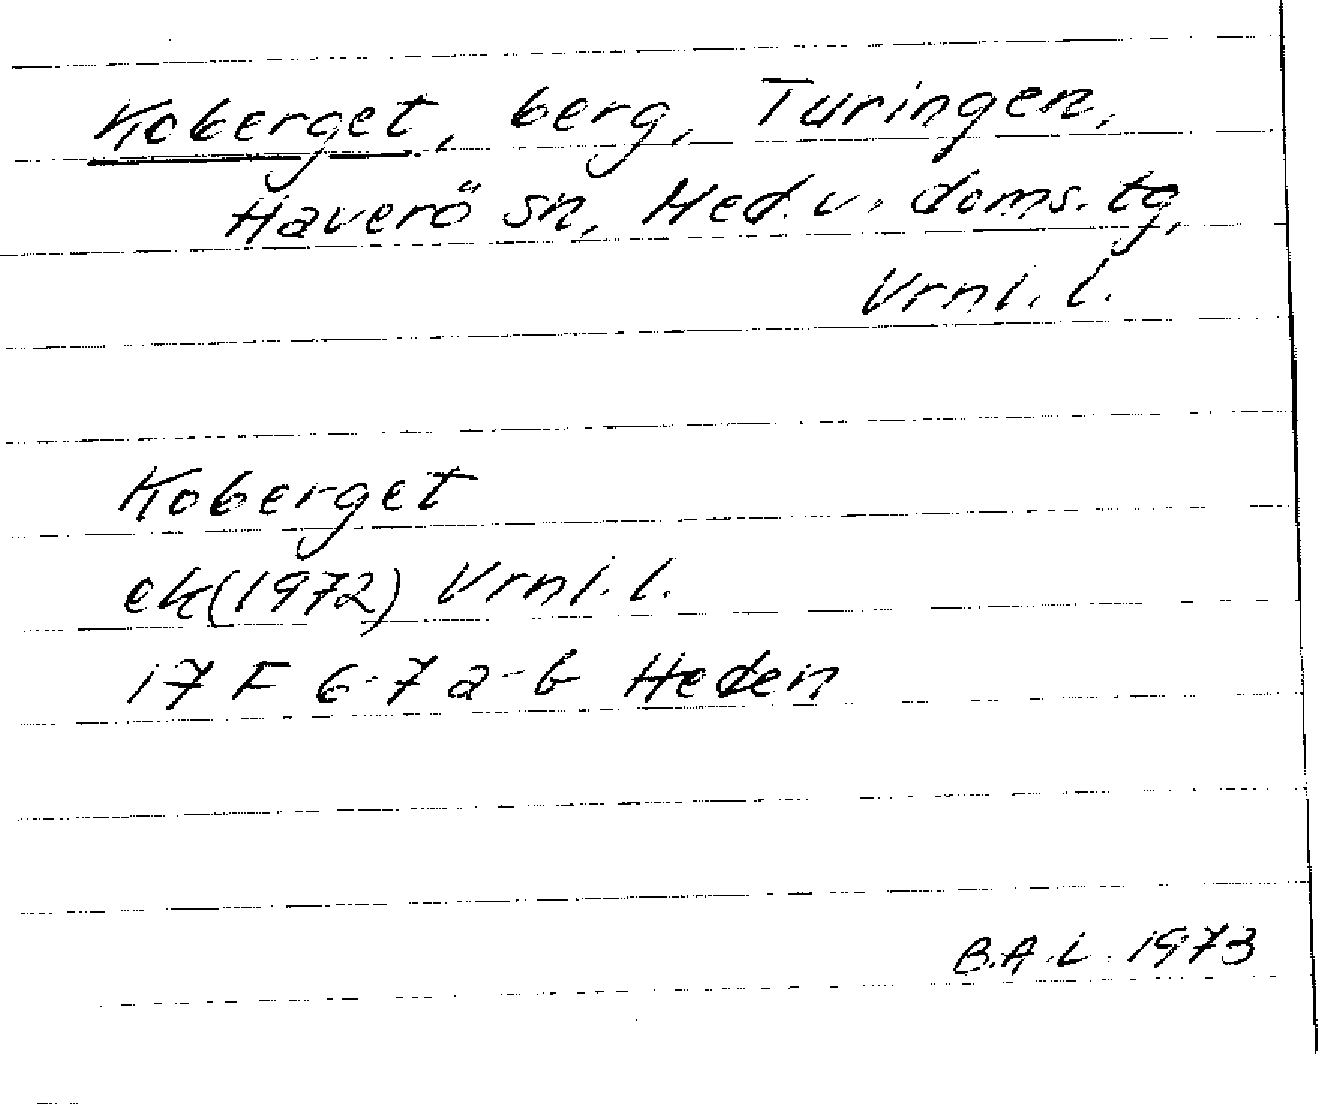 Koberget, berg, Turingen,
Haverö sn, Med. v. doms. tg,
Vrnl. l.
Koberget
ek (1972) Vrnl. l.
17 F 6-7 a-b Heden
B.A.L. 1973